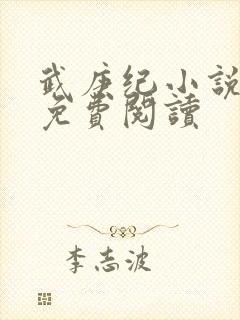 武庚纪小說
免費閱讀
李志波